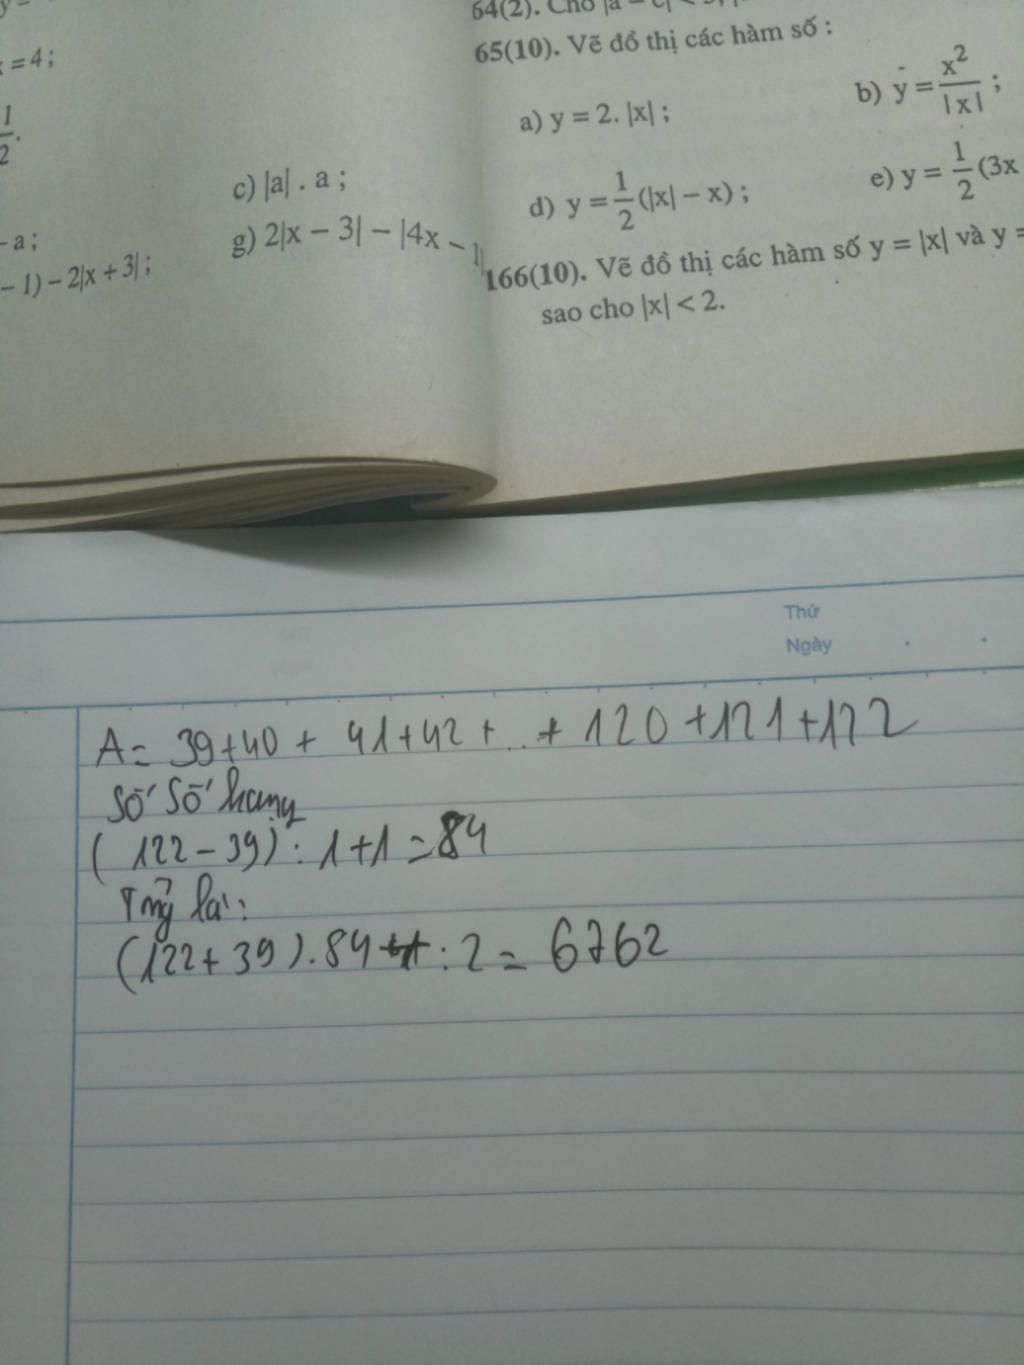 x = 4 ;
1/2.
c) |a| . a ;
- a ;
g) 2|x − 3| − |4x − 1|
− 1) − 2|x + 3| ;
64(2). Cho |a − c| <
65(10). Vẽ đồ thị các hàm số :
a) y = 2. |x| ;
b) y = x²/|x| ;
d) y = 1/2 (|x| − x) ;
e) y = 1/2 (3x
166(10). Vẽ đồ thị các hàm số y = |x| và y =
sao cho |x| < 2.
Thứ
Ngày
A = 39+40 + 41+42 + ... + 120 +121+122
Số số hạng
( 122 − 39) : 1+1 = 84
(122+ 39 ).84 : 2 = 6762